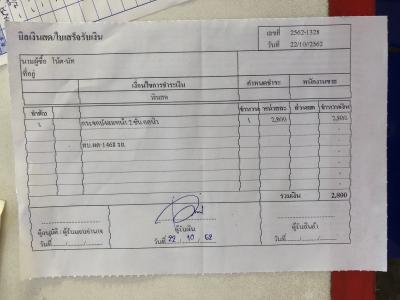 บิลเงินสด/ใบเสร็จรับเงิน
เลขที่ 2562-1328
วันที่ 22/10/2562
นามผู้ซื้อ
ที่อยู่
เงื่อนไขการชำระเงิน กำหนดชำระ พนักงานขาย
เงินสด
ลำดับ จำนวน หน่วยละ ส่วนลด จำนวนเงิน
1 กระจกบังลมหน้า 2 ชั้น 1 2,800 2,800
รวมเงิน 2,800
ผู้อนุมัติ / ผู้รับมอบอำนาจ ผู้รับเงิน ผู้รับสินค้า
วันที่ ...../...../..... วันที่ 22 / 10 / 62 วันที่ ...../...../.....